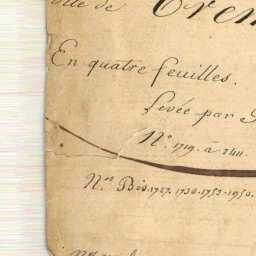 ville de Cren
En quatre feuilles.
Levée par
N.º 1719. à 2411.
N.os Bis. 1727. 1730. 1753. 1950.